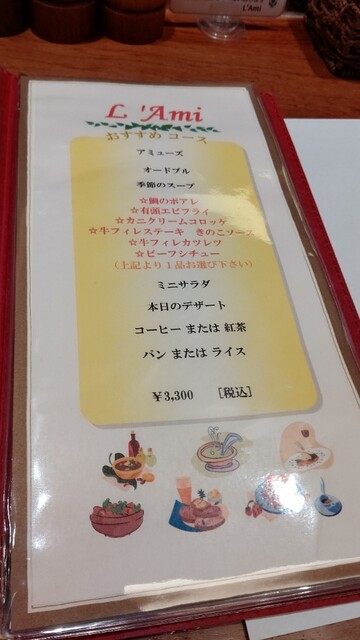 L'Ami
L 'Ami
おすすめ コース
アミューズ
オードブル
季節のスープ
☆鯛のポアレ
☆有頭エビフライ
☆カニクリームコロッケ
☆牛フィレステーキ　きのこソース
☆牛フィレカツレツ
☆ビーフシチュー
（上記より１品お選び下さい）
ミニサラダ
本日のデザート
コーヒー または 紅茶
パン または ライス
￥3,300　［税込］